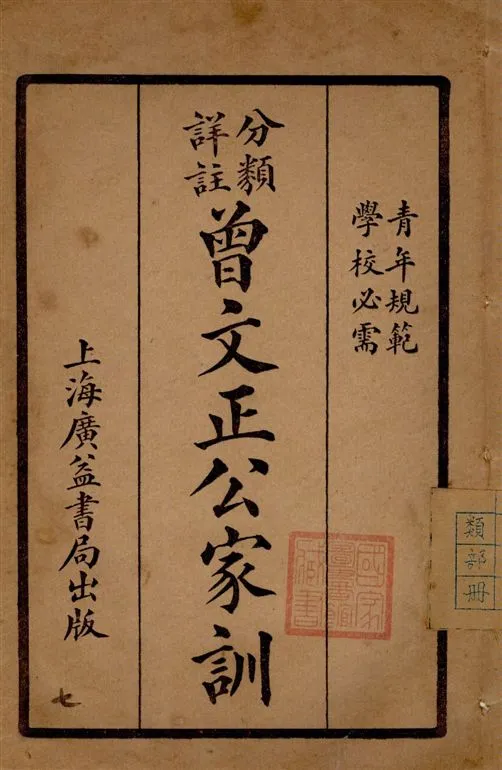 青年規範
學校必需
分類
詳註
曾文正公家訓
上海廣益書局出版
七
類
部
冊
國家
圖書館
藏書